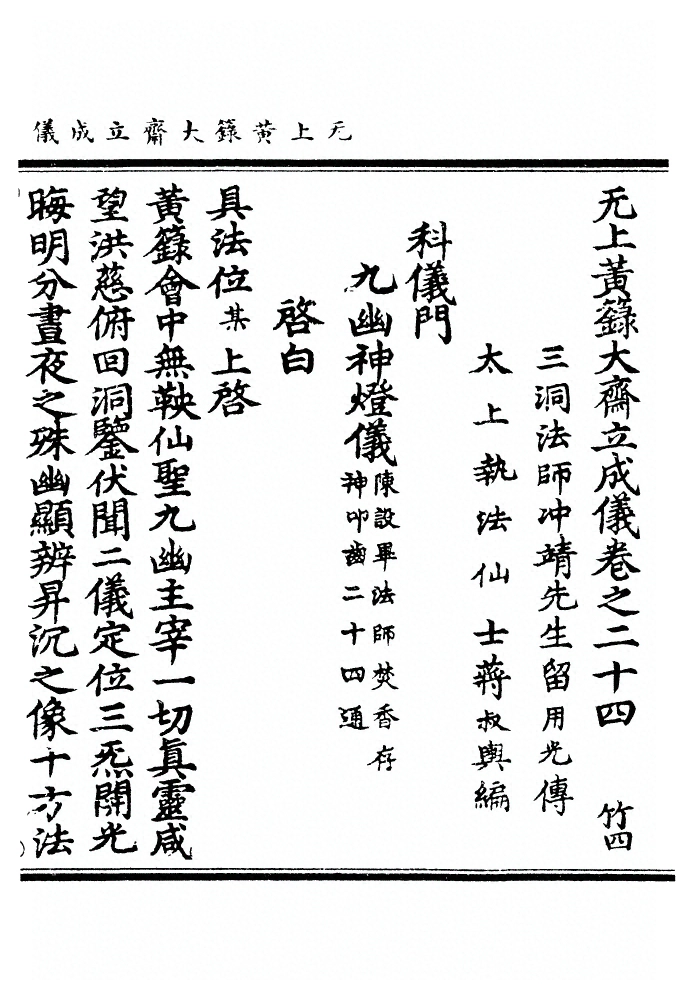 无上黃籙大齋立成儀
无上黃籙大齋立成儀卷之二十四 竹四
三洞法師冲靖先生留用光傳
太上執法仙士蔣叔輿編
科儀門
九幽神燈儀陳設畢法師焚香存
神叩齒二十四通
啓白
具法位某上啓
黃籙會中無鞅仙聖九幽主宰一切眞靈咸
望洪慈俯回洞鑒伏聞二儀定位三炁開光
晦明分晝夜之殊幽顯辨昇沉之像十方法